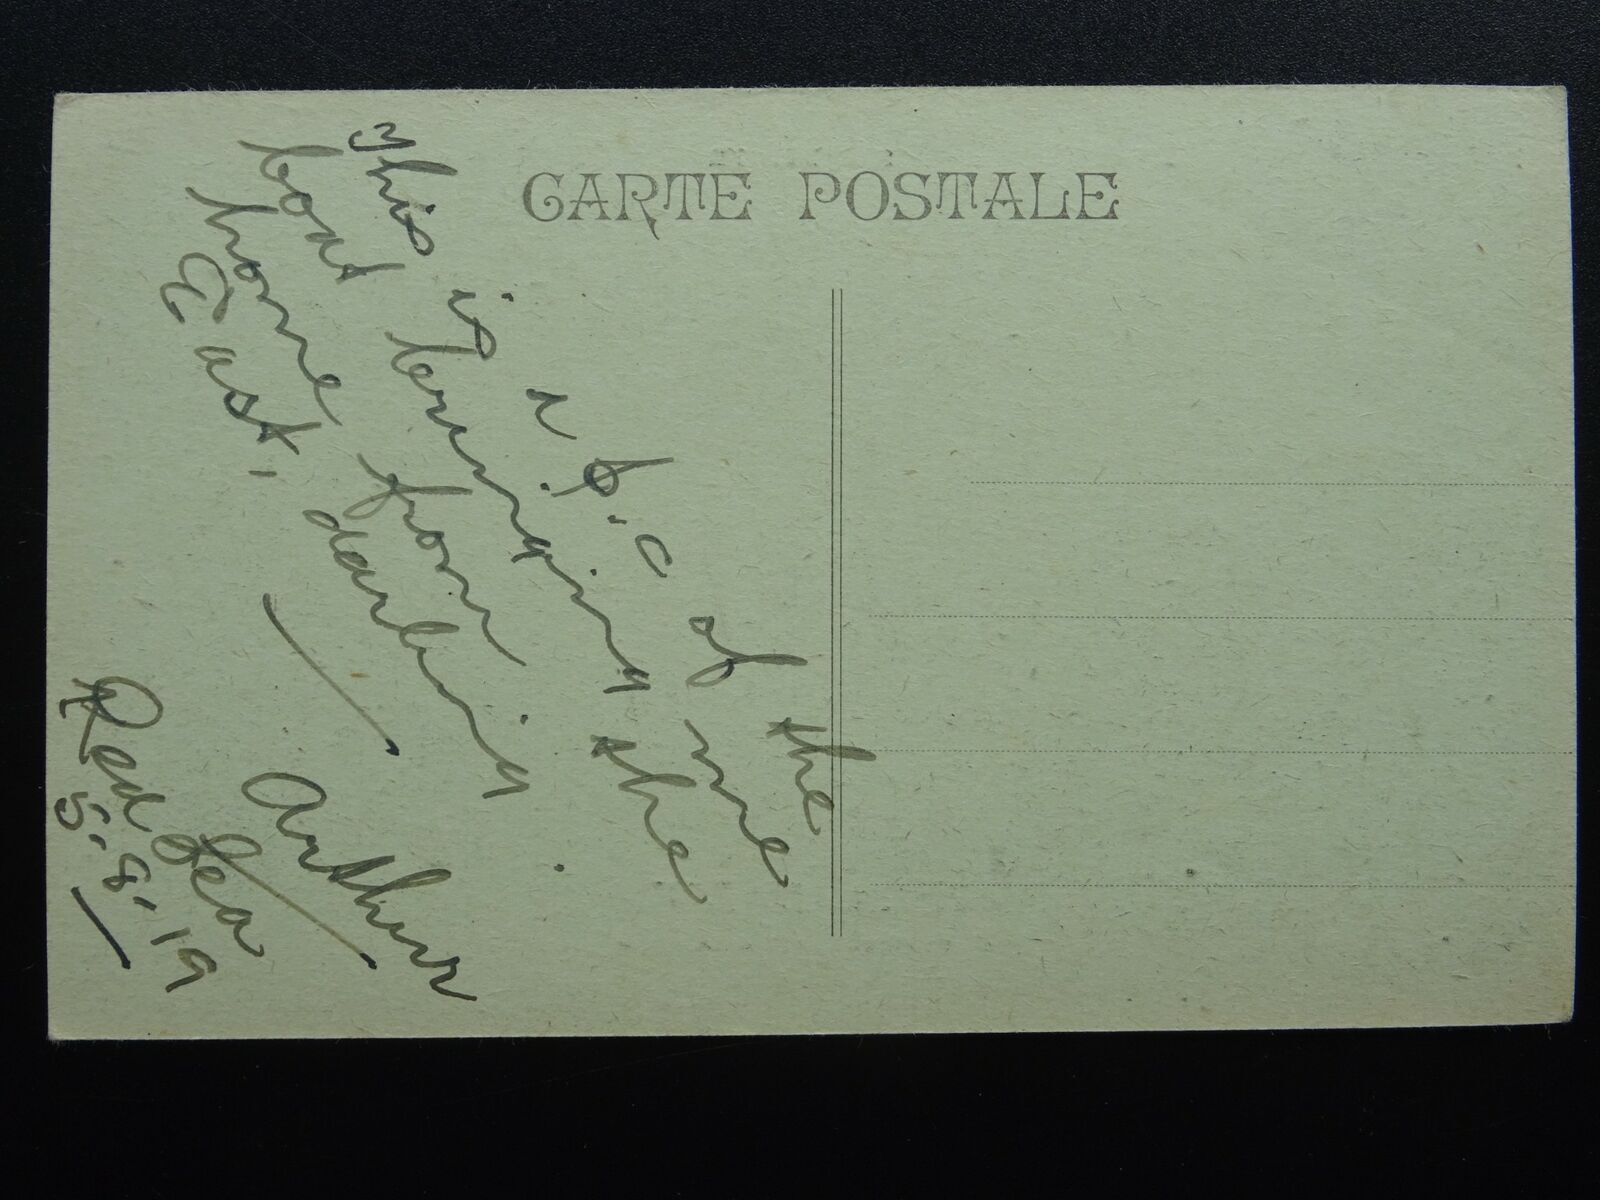 CARTE POSTALE
This is a p.c of the
boat bringing me
home from the
East, darling.
Arthur
Red Sea
5.8.19